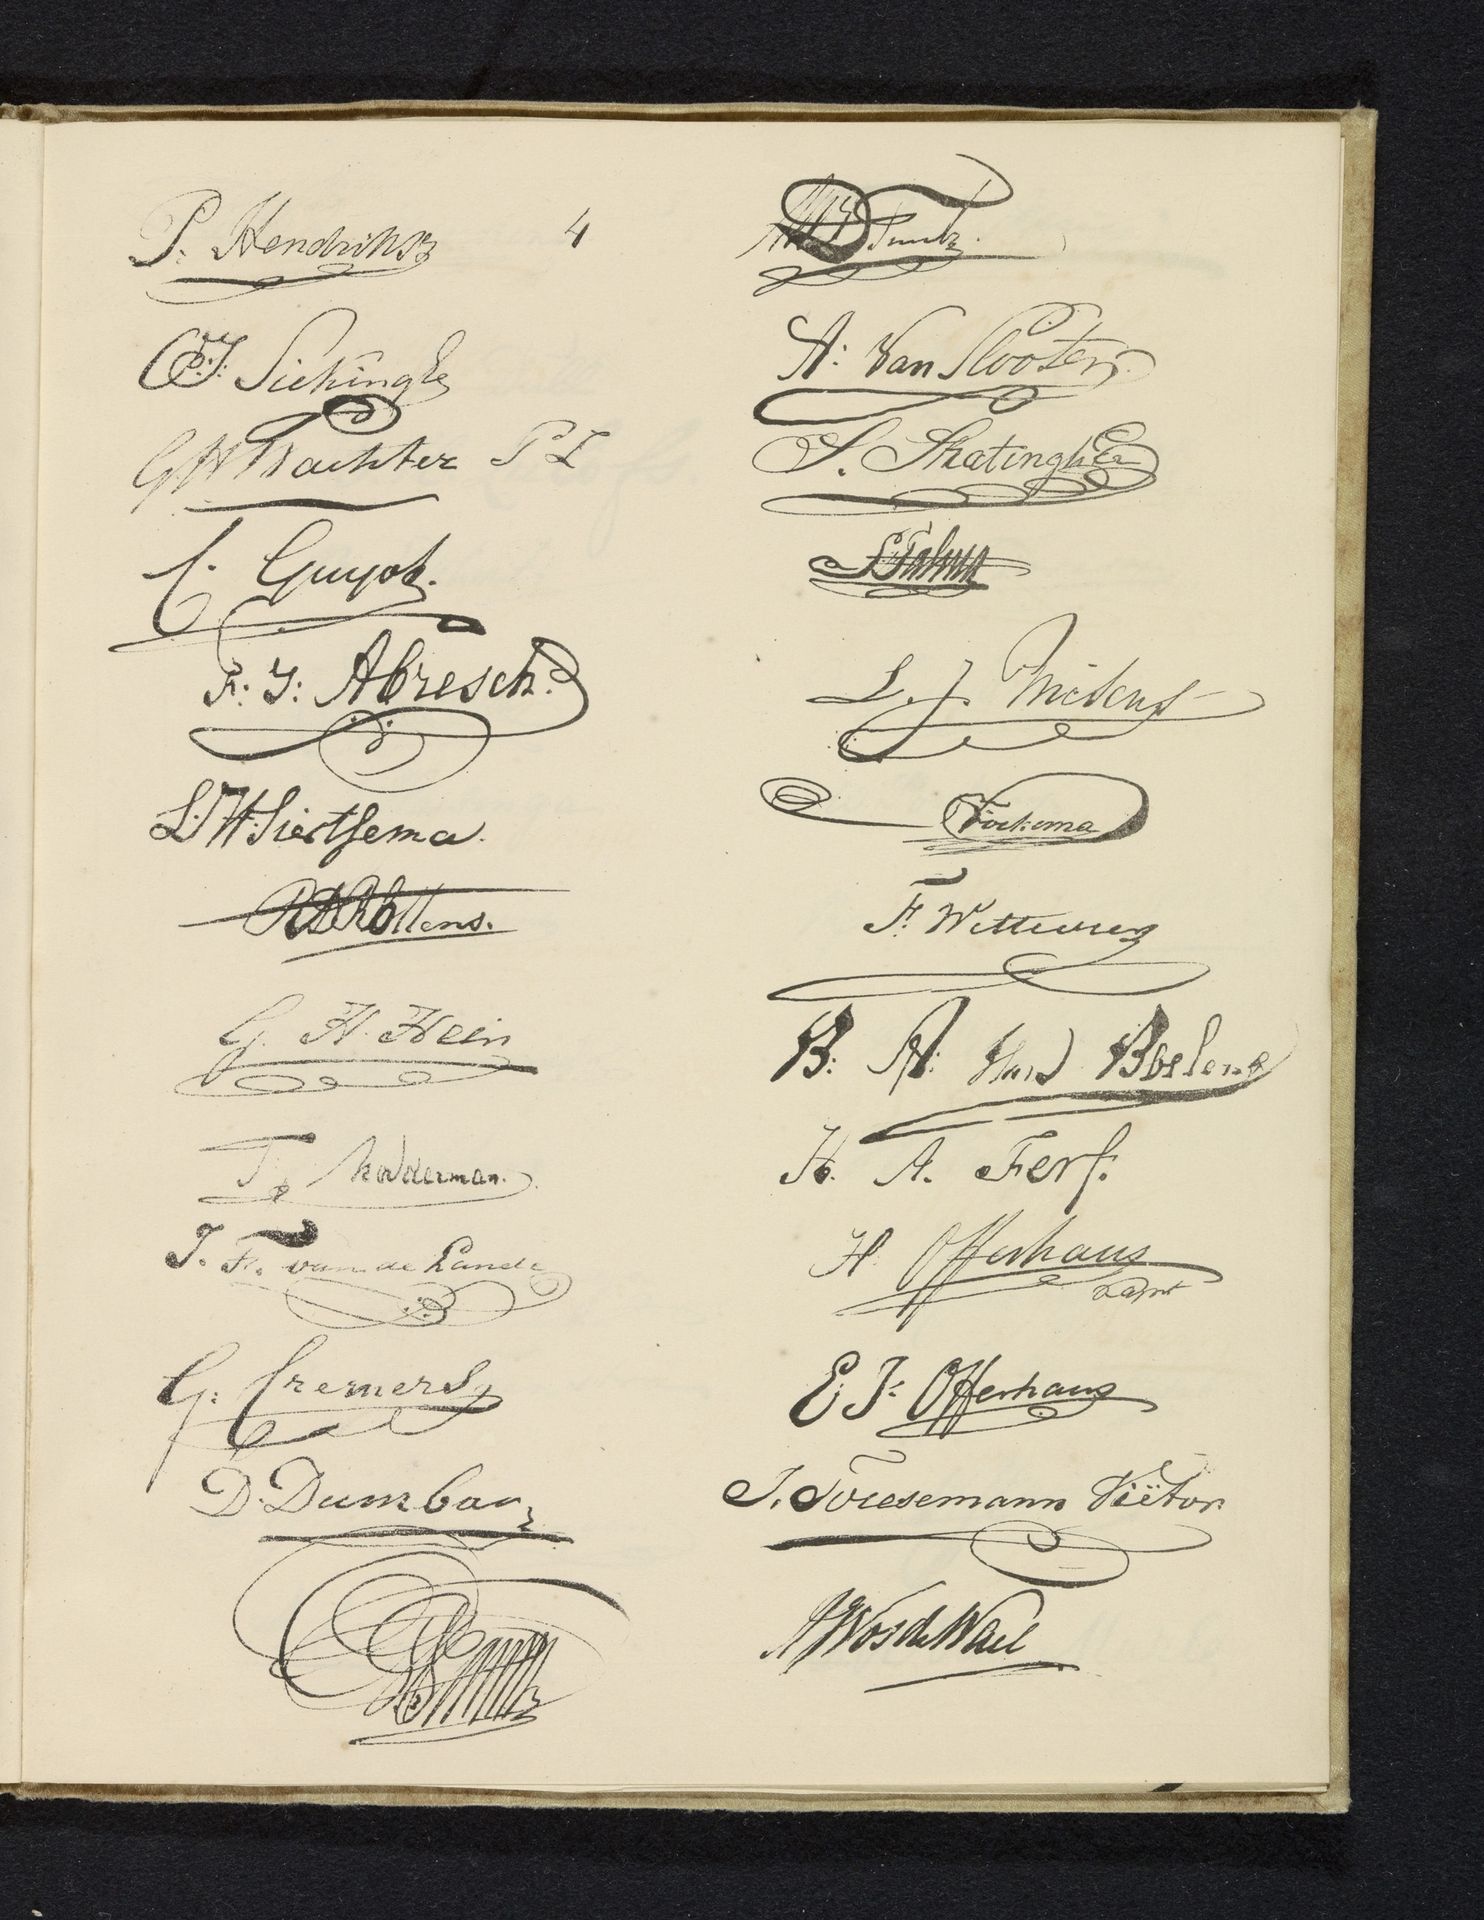 P. Hendriksz
4
C.P.J. Sickinghe
G H Trachter P L
C. Guyot.
F: J: Abresch.
L: W: Siertsema.
Ottens.
G. H. Hein
T Modderman.
J. F. van de Lande
G: Cremers
D. Dumbar
A: Van Slooten.
S. Skatinghe
S Talma
L. J.
Fockema
F: Wttewrg
B: A: Van Boelens
H. A. Ferf.
H Offerhaus
E: J: Offerhaus
J. Toresemann Viëtor
A J Vos de Wael